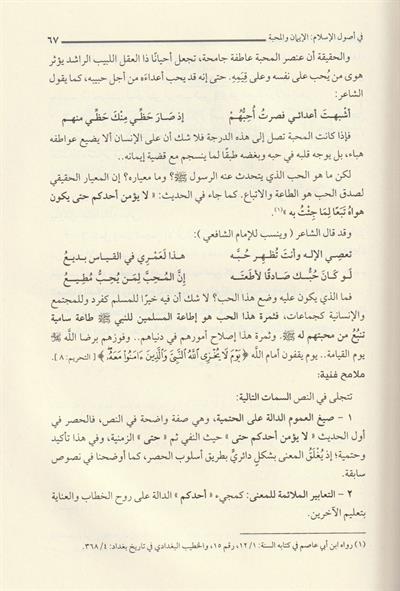 في أصول الإسلام: الإيمان والمحبة ٦٧
والحقيقة أن عنصر المحبة عاطفة جامحة، تجعل أحيانًا ذا العقل اللبيب الراشد يؤثر
هوى من يُحب على نفسه وعلى قِيَمِهِ. حتى إنه قد يحب أعداءَه من أجل حبيبه، كما يقول
الشاعر:
أشبهتَ أعدائي فصرتُ أُحِبُّهُمُ إذ صَارَ حَظِّي مِنْكَ حَظِّي منهم
فإذا كانت المحبة تصل إلى هذه الدرجة فلا شك أن على الإنسان ألا يضيع عواطفه
هباء، بل يوجه قلبه في حبه وبغضه طبقًا لما ينسجم مع قضية إيمانه..
لكن ما هو الحب الذي يتحدث عنه الرسول ﷺ؟ وما معياره؟ إن المعيار الحقيقي
لصدق الحب هو الطاعة والاتباع. كما جاء في الحديث: « لا يؤمن أحدكم حتى يكون
هواهُ تَبَعًا لِمَا جِئْتُ به »(١).
وقد قال الشاعر ( وينسب للإمام الشافعي ):
تعصِي الإله وأنتَ تُظهِر حُبَّه هذا لَعَمْرِي في القياس بديعُ
لو كَانَ حُبُّك صَادقًا لأطَعْتَه إنَّ المُحِبَّ لِمَن يُحِبُّ مُطِيعُ
فما الذي يكون عليه وضع هذا الحب؟ لا شك أن فيه خيرًا للمسلم كفرد وللمجتمع
والإنسانية كجماعات، فثمرة هذا الحب هو إطاعة المسلمين للنبي ﷺ طاعة سامية
تنبُعُ من محبتهم له ﷺ. وثمرة هذا إصلاح أمورهم في دنياهم.. وفوزهم برضا اللَّه ﷻ
يوم القيامة.. يوم يقفون أمام اللَّه ﴿ يَوْمَ لَا يُخْزِى ٱللَّهُ ٱلنَّبِىَّ وَٱلَّذِينَ ءَامَنُوا۟ مَعَهُۥ ﴾ [ التحريم: ٨ ].
ملامح فنية:
تتجلى في النص السمات التالية:
١ - صيغ العموم الدالة على الحتمية، وهي صفة واضحة في النص، فالحصر في
أول الحديث « لا يؤمن أحدكم حتى » حيث النفي ثم « حتى » الزمنية، وفي هذا تأكيد
وحتمية؛ إذ يُغْلَقُ المعنى بشكلٍ دائريٍّ بطريق أسلوب الحصر، كما أوضحنا في نصوص
سابقة.
٢ - التعابير الملائمة للمعنى: كمجيء « أحدكم » الدالة على روح الخطاب والعناية
بتعليم الآخرين.
(١) رواه ابن أبي عاصم في كتابه السنة: ١٢/١، رقم ١٥، والخطيب البغدادي في تاريخ بغداد: ٣٦٨/٤.